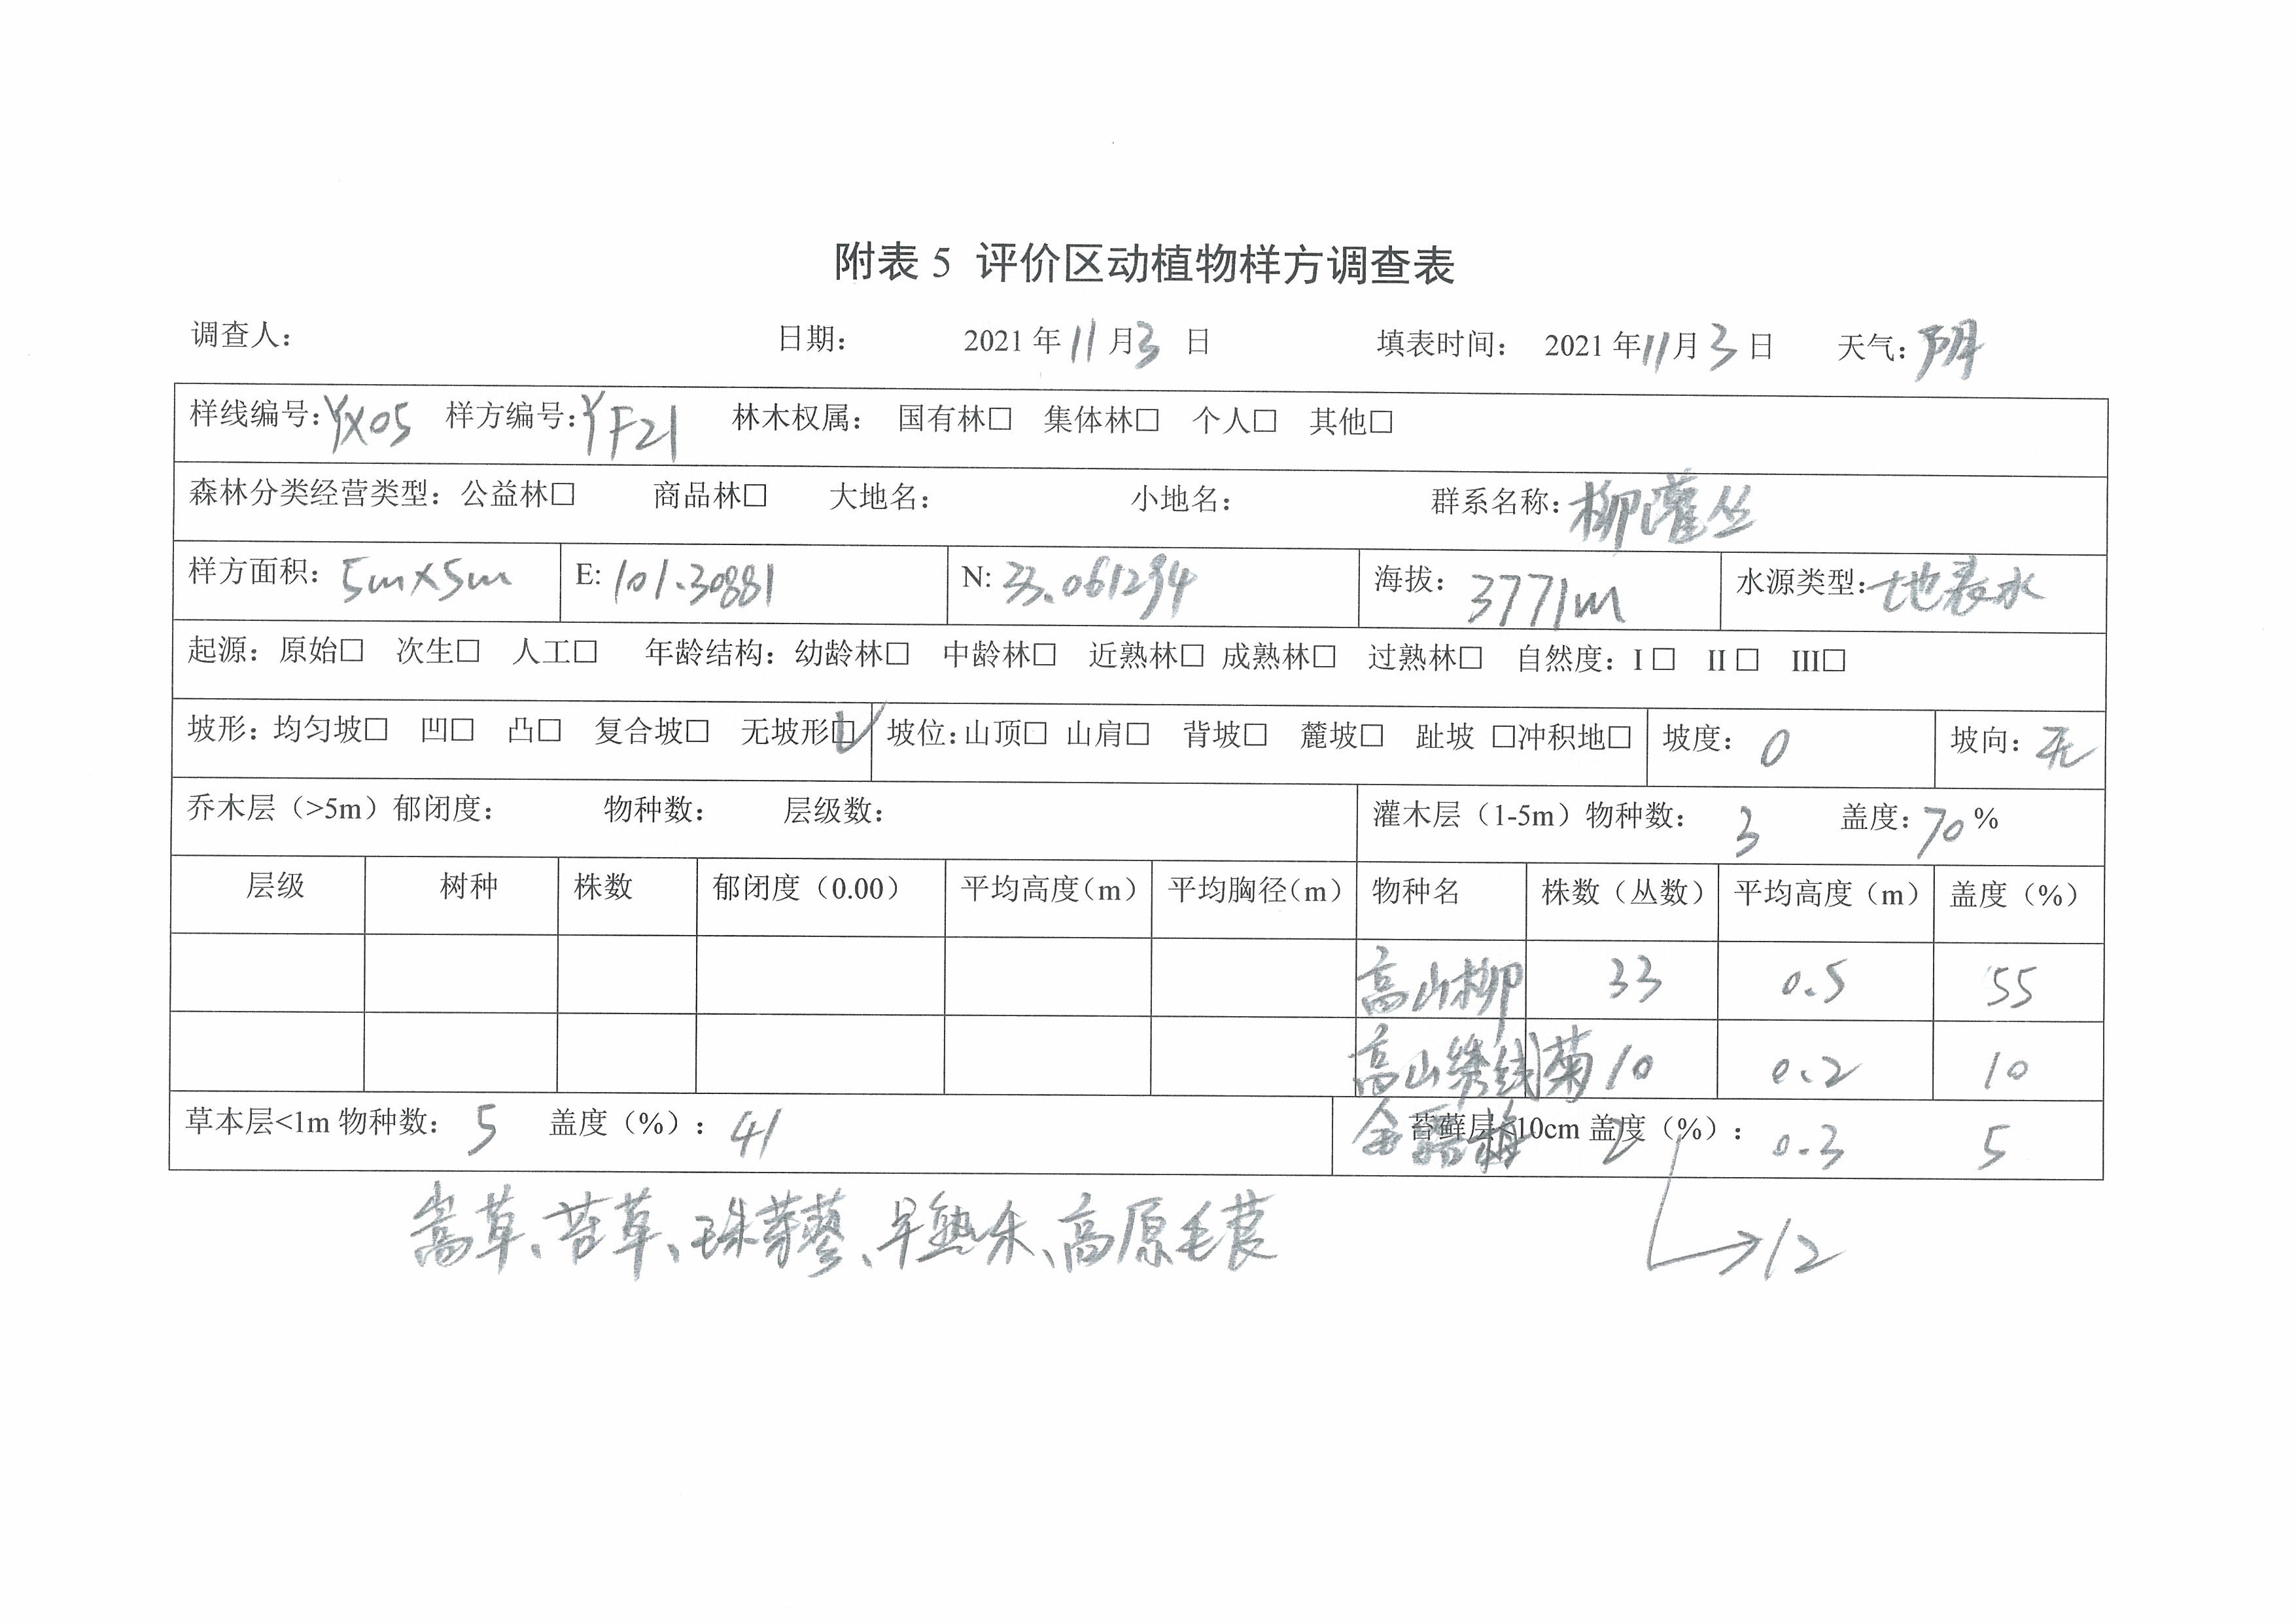 附表 5 评价区动植物样方调查表
调查人： 日期： 2021 年 11 月 3 日 填表时间： 2021 年 11 月 3 日 天气：阴
样线编号：YX05 样方编号：YF21 林木权属： 国有林□ 集体林□ 个人□ 其他□
森林分类经营类型：公益林□ 商品林□ 大地名： 小地名： 群系名称：柳灌丛
样方面积：5m×5m E: 101.30881 N: 33.061294 海拔：3771m 水源类型：地表水
起源：原始□ 次生□ 人工□ 年龄结构：幼龄林□ 中龄林□ 近熟林□ 成熟林□ 过熟林□ 自然度：I □ II □ III□
坡形：均匀坡□ 凹□ 凸□ 复合坡□ 无坡形☑ 坡位：山顶□ 山肩□ 背坡□ 麓坡□ 趾坡 □冲积地□ 坡度：0 坡向：无
乔木层（>5m）郁闭度： 物种数： 层级数： 灌木层（1-5m）物种数： 3 盖度：70%
层级 树种 株数 郁闭度（0.00） 平均高度（m） 平均胸径（m） 物种名 株数（丛数） 平均高度（m） 盖度（%）
高山柳 33 0.5 55
高山绣线菊 10 0.2 10
草本层<1m 物种数： 5 盖度（%）：41 苔藓层<10cm 盖度（%）：
金露梅 2 0.3 5
嵩草、苔草、珠芽蓼、早熟禾、高原毛茛
→12